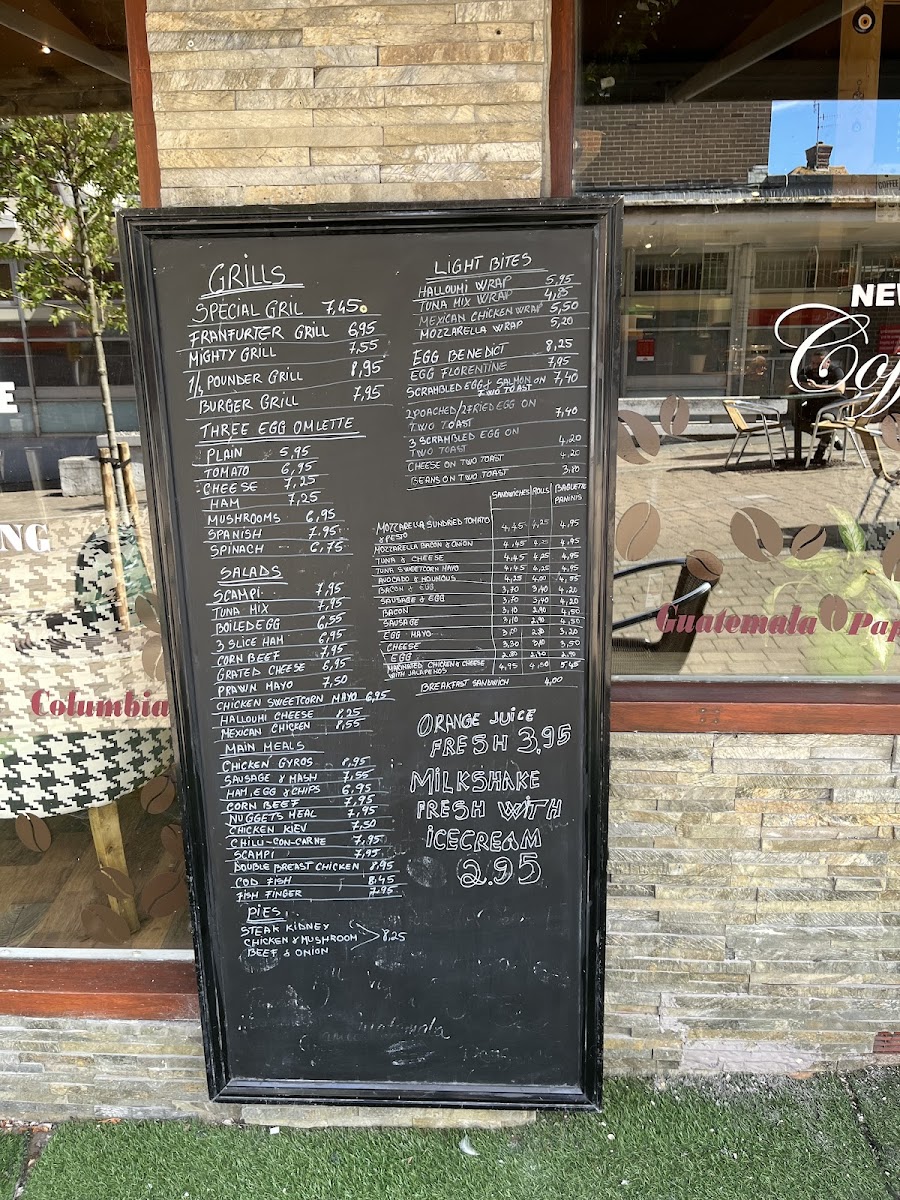 GRILLS
SPECIAL GRIL 7,45
FRANFURTER GRILL 6,95
MIGHTY GRILL 7,55
POUNDER GRILL 8,95
BURGER GRILL 7,95
THREE EGG OMLETTE
PLAIN 5,95
TOMATO 6,95
CHEESE 7,25
HAM 7,25
MUSHROOMS 6,95
SPANISH 7,95
SPINACH 6,75
SALADS
SCAMPI 7,95
TUNA MIX 7,95
BOILED EGG 6,55
3 SLICE HAM 6,95
CORN BEEF 7,95
GRATED CHEESE 6,95
PRAWN MAYO 7,50
CHICKEN SWEETCORN MAYO 6,95
HALLOUHI CHEESE 8,25
MEXICAN CHICKEN 8,55
MAIN MEALS
CHICKEN GYROS 8,95
SAUSAGE & MASH 7,55
HAM, EGG & CHIPS 6,95
CORN BEEF 7,95
NUGGETS MEAL 7,95
CHICKEN KIEV 7,50
CHILLI-CON-CARNE 7,95
SCAMPI 7,95
DOUBLE BREAST CHICKEN 8,95
COD FISH 8,45
FISH FINGER 7,95
PIES
STEAK KIDNEY
CHICKEN & MUSHROOM 8,25
BEEF & ONION
LIGHT BITES
HALLOUHI WRAP 5,95
TUNA MIX WRAP 4,85
MEXICAN CHICKEN WRAP 5,50
MOZZARELLA WRAP 5,20
EGG BENEDICT 8,25
EGG FLORENTINE 7,95
SCRAMBLED EGG & SALMON ON 7,40
TWO TOAST
2 POACHED/2 FRIED EGG ON
TWO TOAST 7,40
3 SCRAMBLED EGG ON
TWO TOAST 4,20
CHEESE ON TWO TOAST 4,20
BEANS ON TWO TOAST 3,80
SANDWICHES ROLLS BAGUETTE
PANINIS
MOZZARELLA SUNDRIED TOMATO
& PESTO 4,45 4,25 4,95
MOZZARELLA BACON & ONION 4,45 4,25 4,95
TUNA & CHEESE 4,45 4,25 4,95
TUNA SWEETCORN MAYO 4,45 4,25 4,95
AVOCADO & HOUMOUS 4,25 4,00 4,55
BACON & EGG 3,70 3,40 4,20
SAUSAGE & EGG 3,70 3,40 4,20
BACON 3,10 2,90 4,50
SAUSAGE 3,10 2,90
EGG MAYO 3,20
CHEESE 3,50
EGG
MARINATED CHICKEN & CHEESE
WITH JALAPENOS 4,95 4,50 5,45
BREAKFAST SANDWICH 4,00
ORANGE JUICE
FRESH 3,95
MILKSHAKE
FRESH WITH
ICECREAM
2.95
NG
Columbia
NEW
Coff
Guatemala Pap
COFFEE